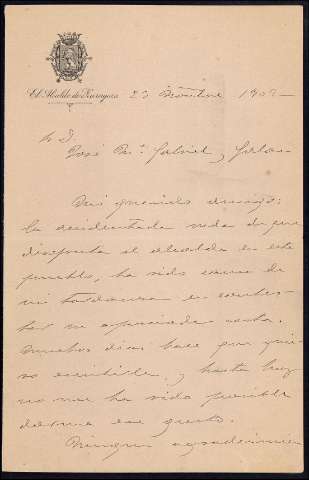 El Alcalde de Zaragoza 23 Dbre 1902
S. D.
José Mª Gabriel y Galán
Mi querido amigo:
la accidentada vida de que
disfruta el alcalde de este
pueblo, ha sido causa de
mi tardanza en contes-
tar su apreciada carta.
Muchos días hace que qui-
se escribirle, y hasta hoy
no me ha sido posible
darme ese gusto.
Ningun agradecimien